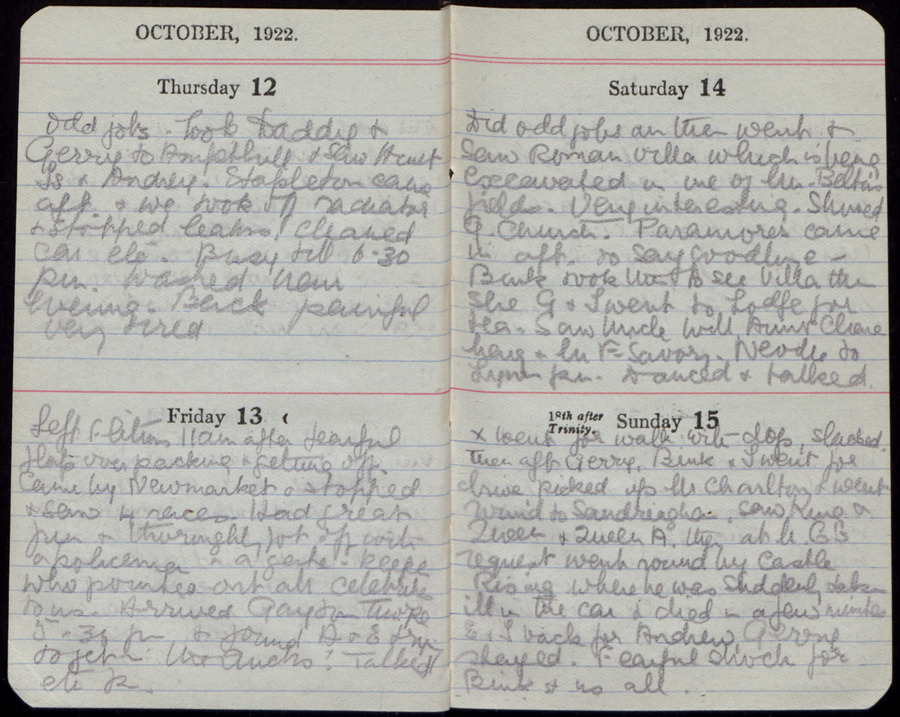 OCTOBER, 1922.
Thursday 12
Odd jobs. Took Daddy &
Gerry to Ampthill & saw Aunt
Is & Audrey. Stapleton came
aft. & we took off radiator
& stopped leaks! Cleaned
car etc. Busy till 6.30
pm. Washed hair
evening. Back painful
very tired
Friday 13
Left Flitton 11 am after fearful
over packing & getting off.
Came by Newmarket & stopped
& saw 4 races. Had great
fun & thoroughly got off with
a policeman & a gate-keeper
who pointed out all celebrities
to us. Arrived Gayton Thorpe
5.30 pm & found D & E
together. The Ducks! Talked
etc
OCTOBER, 1922.
Saturday 14
Did odd jobs an then went &
saw Roman villa which is being
excavated in one of Mr.
fields. Very interesting. Showed
G. Church. Paramores came
in aft. to say Goodbye –
Bink took them to see Villa then
she G & I went to Lodge for
tea. Saw Uncle Will Aunt
& Mr F-Savory. Neville to
Lynn pm. Danced & talked.
18th after
Trinity.
Sunday 15
x went for walk with dogs, slacked.
Then aft Gerry, Bink & I went for
drive, picked up Mr Charlton & went
round to Sandringham. Saw King &
Queen & Queen A. then at Mr. C's
request went round by Castle
Rising where he was suddenly taken
ill in the car & died in a few minutes
E & I back for Andrew, Gerry
stayed. Fearful shock for
Bink & us all.